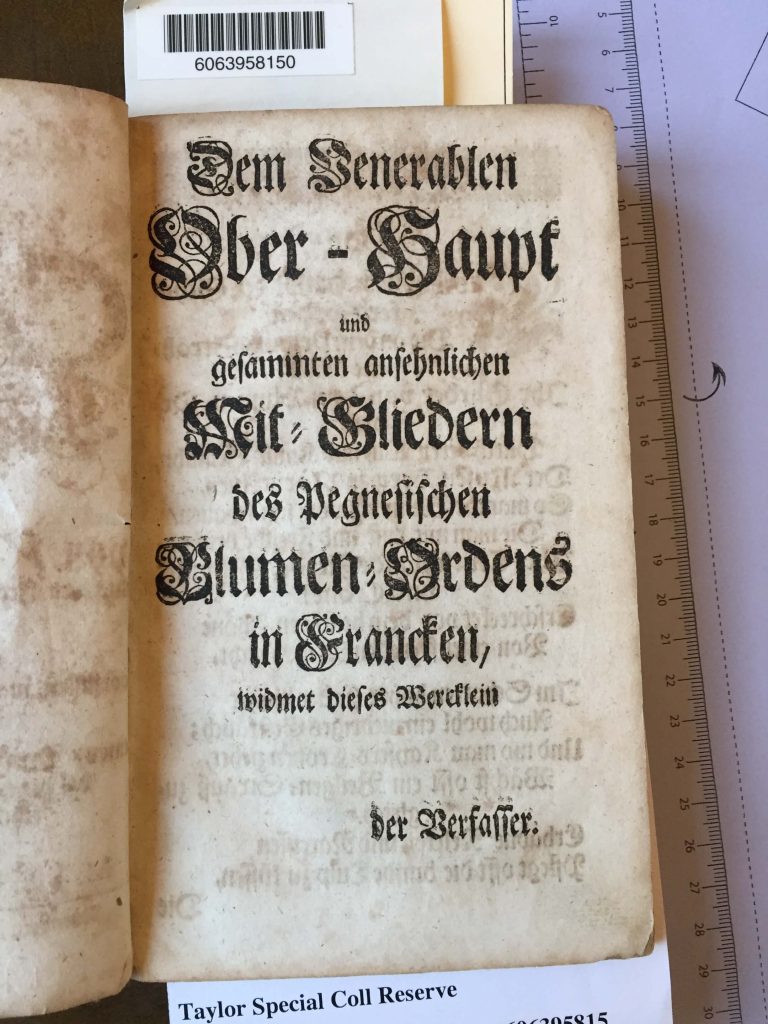 6063958150
Dem Venerablen
Ober-Haupt
und
gesammten ansehnlichen
Mit-Gliedern
des Pegnesischen
Blumen-Ordens
in Francken,
widmet dieses Wercklein
der Verfasser.
Die
Taylor Special Coll Reserve
10
5
6
7
8
9
10
11
12
13
14
15
16
17
18
19
20
21
22
23
24
25
26
27
28
29
30